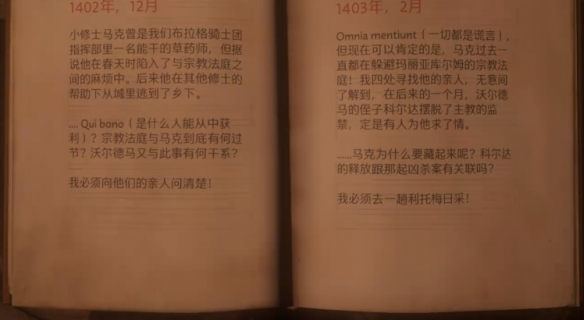 1402年，12月
小修士马克曾是我们布拉格骑士团
指挥部里一名能干的草药师，但据
说他在春天时陷入了与宗教法庭之
间的麻烦中。后来他在其他修士的
帮助下从城里逃到了乡下。
.... Qui bono（是什么人能从中获
利）？宗教法庭与马克到底有何过
节？沃尔德马又与此事有何干系？
我必须向他们的亲人问清楚！
1403年，2月
Omnia mentiunt（一切都是谎言），
但现在可以肯定的是，马克过去一
直都在躲避玛丽亚库尔姆的宗教法
庭！我四处寻找他的亲人，无意间
了解到，在后来的一个月，沃尔德
马的侄子科尔达摆脱了主教的监
禁，定是有人为他求了情。
......马克为什么要藏起来呢？科尔达
的释放跟那起凶杀案有关联吗？
我必须去一趟利托梅日采！